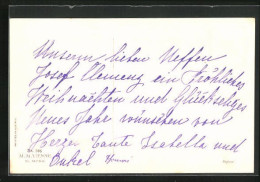 Unserm lieben Neffen
Josef Clemens ein Fröhliches
Weihnachten und Glückseliges
Neues Jahr wünschen von
Herzen Tante Isabella und
Onkel